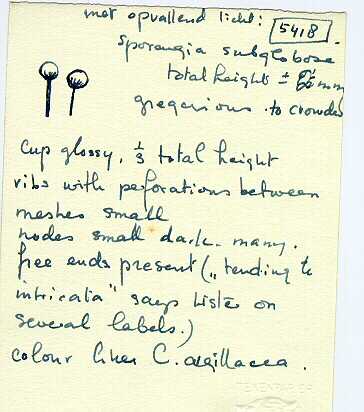 met opvallend licht:
5418
sporangia subglobose
total height ± 2 mm
gregarious to crowded
Cup glossy, 1/3 total height
ribs with perforations between
meshes small
nodes small dark. many.
free ends present („tending to
intricata" says Lister on
several labels.)
colour like C. argillacea.
TEKENPAPIER